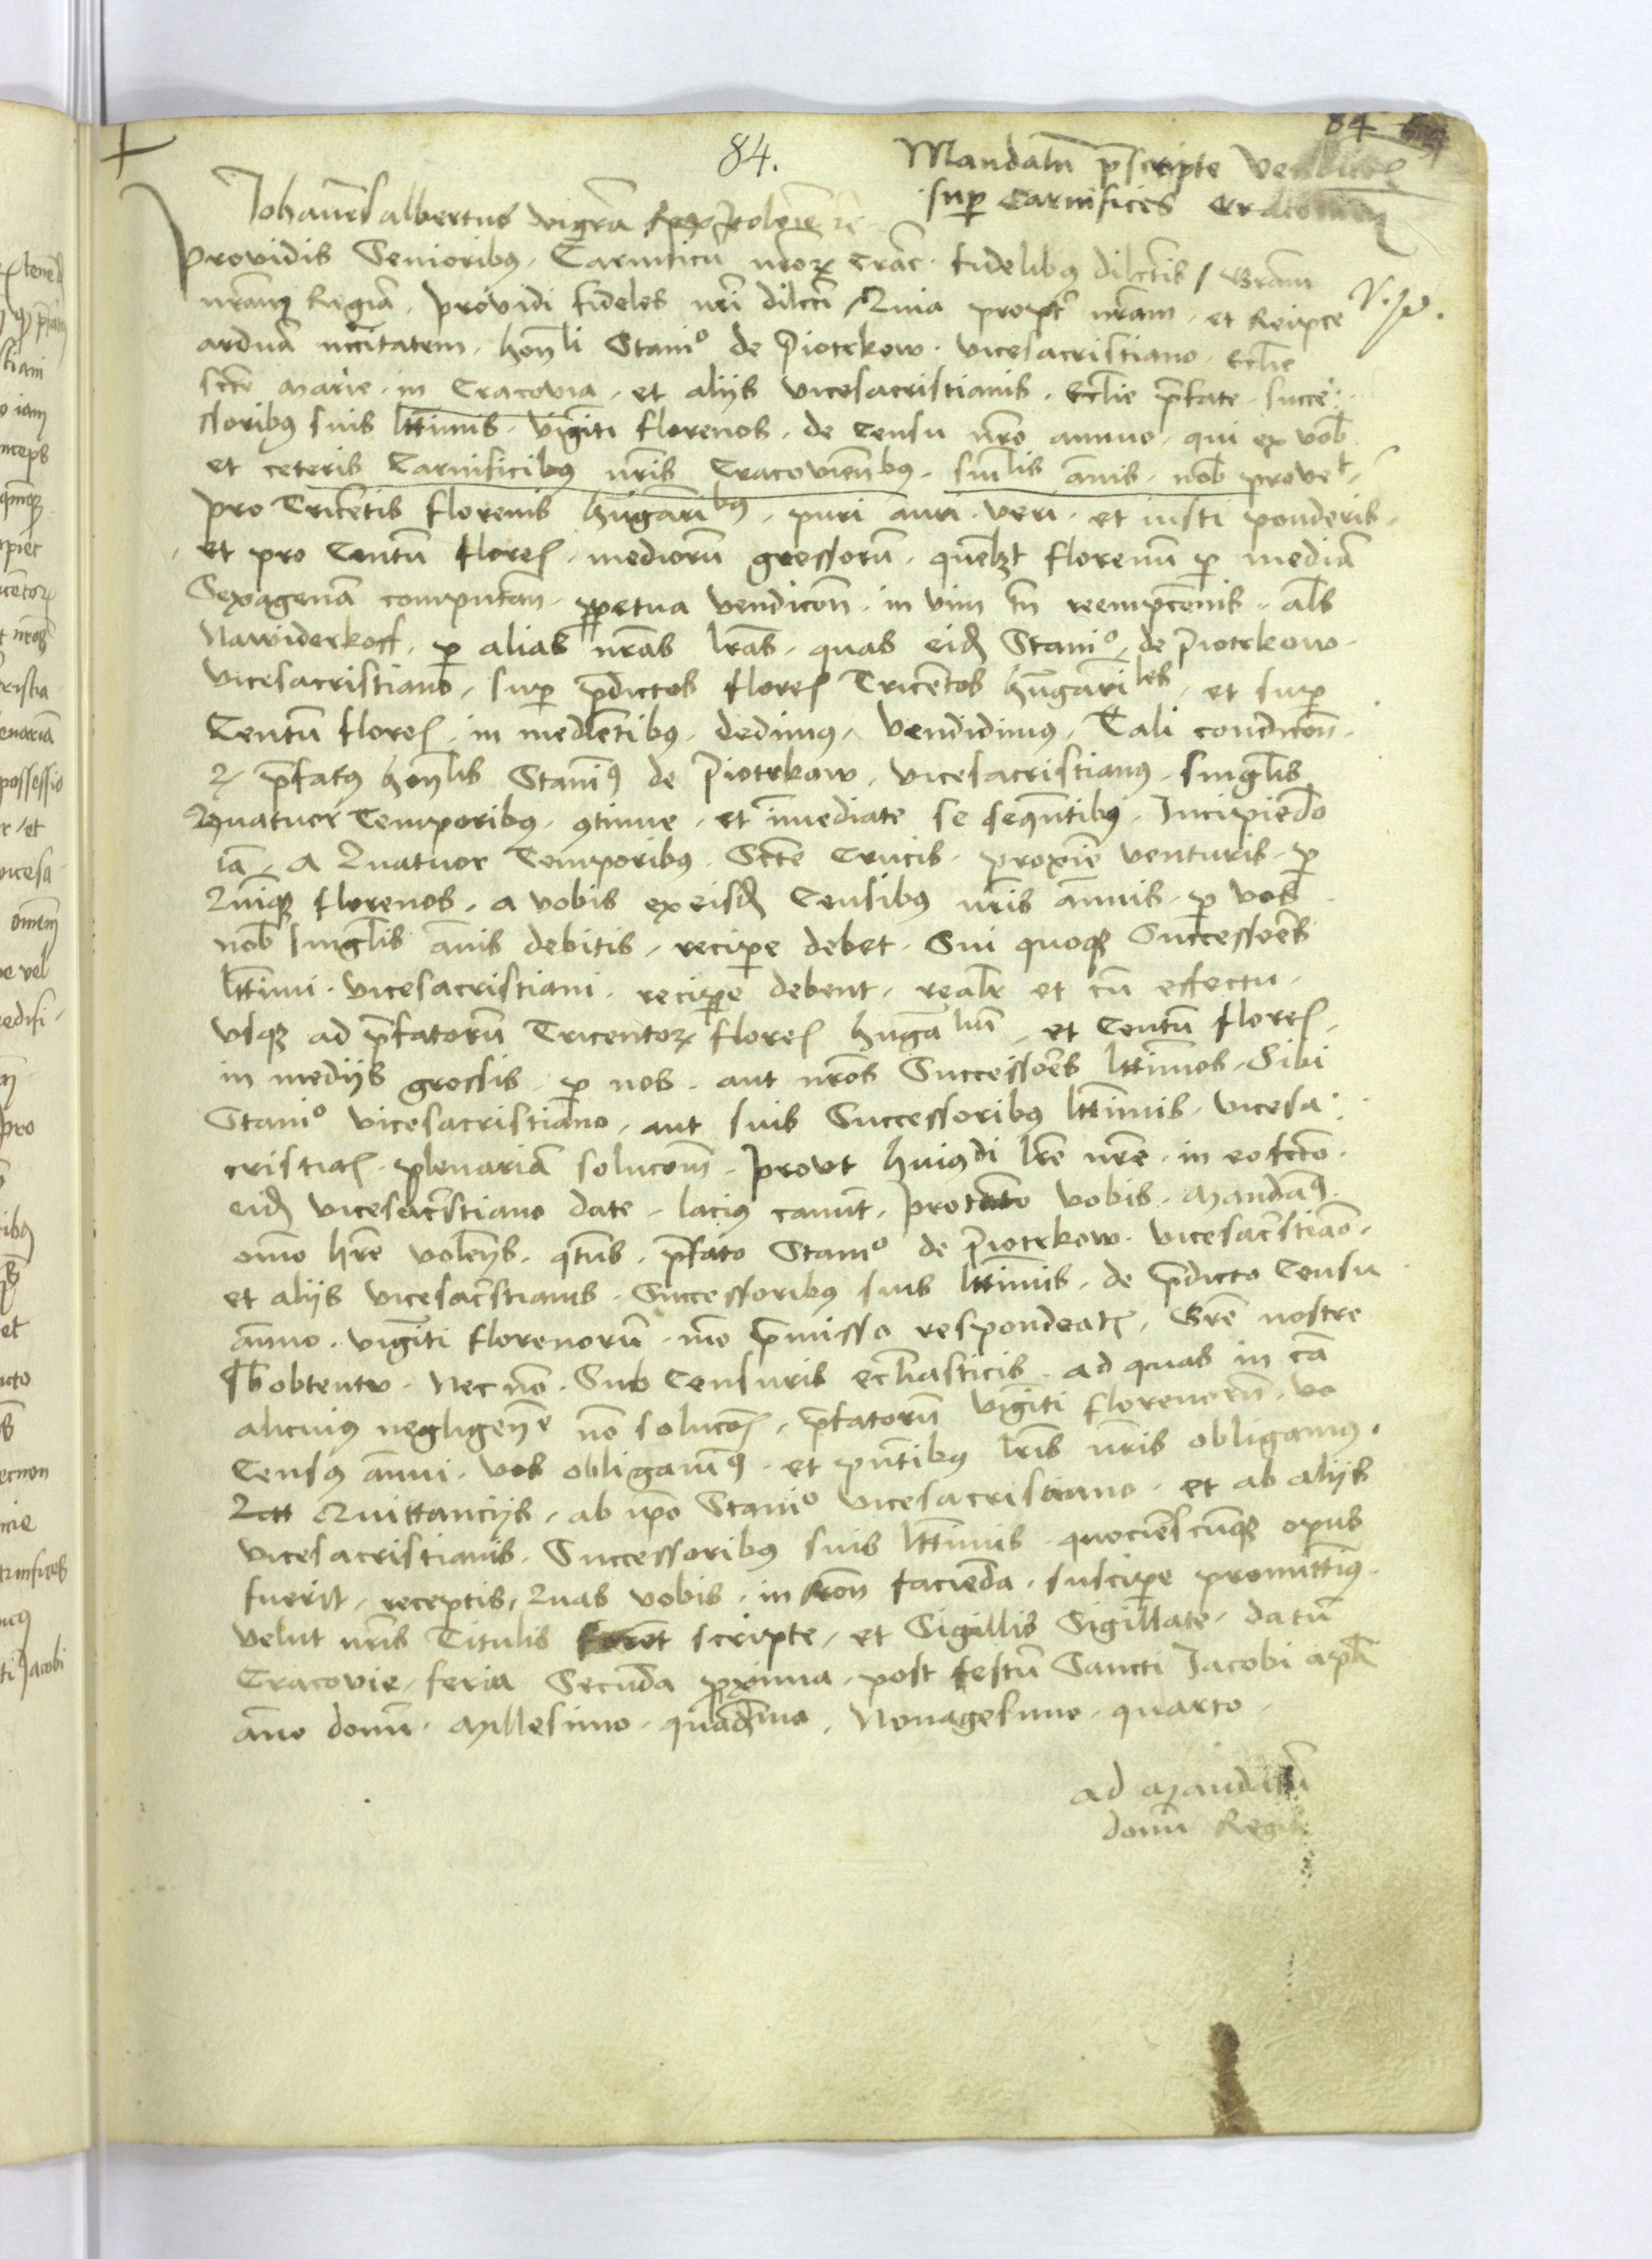 84
84.
Mandatū p̄scripte
sup Carnifices
Johannes albertus dei grā Rex Polonie ⁊c̄
Providis Senioribꝯ Carnificū nr̄oꝝ Crac̄ fidelibꝯ dilectis / Grām
nr̄am Regiā . providi fideles nr̄i dilecti / Quia propt̄ nr̄am . et Reipce
arduā nccitatem . honli Stanio de Piotrkow . vicesacristiano . Eclie
scte Marie in Cracovia . et alijs vicesacristianis . Eclie p̄fate . succe:
ssoribꝯ suis lttimis . viginti florenos . de Censu nr̄o annuo . qui ex vob
et ceteris Carnificibꝯ nr̄is Cracovienbꝯ . singlis annis . nob provet
pro Tricentis florenis hungaribꝯ . puri auri . veri . et iusti ponderis .
et pro Centū floreꝝ . mediorū grossorū . quelꝫt florenū p mediā
Sexagenā computan̄ . ppetua vendicon̄ . in vim tn̄ reempcionis . als
Nawiderkoff . p alias nr̄as lr̄as . quas eid Stanio . de Piotrkow .
vicesacristiano . sup p̄dictos floreꝝ Tricentos hungariles . et sup
Centū floreꝝ . in medietibꝯ . dedimꝯ . vendidimꝯ . Tali condicon̄ .
ꝙ p̄fatꝯ honlis Staniꝯ de Piotrkow . vicesacristianꝯ . singlis
Quatuor Temporibꝯ . ꝯtinue . et imediate se sequentibꝯ . Incipiendo
iā . A Quatuor Temporibꝯ . Scte Crucis . proxime venturis . p
Quinqꝫ florenos . a vobis ex eisd Censibꝯ nr̄is annuis . p vos
nob singlis annis debitis . recipe debet . Sui quoqꝫ Successores
lttimi . vicesacristiani . recipe debent . realr̄ et cū effectu .
vsqꝫ ad p̄fatorū Tricentoꝝ floreꝝ hungaliū . et Centū floreꝝ .
in medijs grossis . p nos . aut nr̄os Successores lttimos . Sibi
Stanio vicesacristiano . aut suis Successoribꝯ lttimis . vicesa:
cristiaꝝ . plenariā solucom̄ . prout huiꝯdi lr̄e nr̄e . in eo fcto .
eid vicesacristiano date . laciꝯ canūt . Protanto vobis . Mandamꝯ
omō hr̄e volentes . qtenus . p̄fato Stanio de Piotrkow . vicesacristiano .
et alijs vicesacristianis . Successoribꝯ suis lttimis . de p̄dicto Censu
annuo . viginti florenorū . mō p̄misso respondeatis . Grē nostre
sb obtentu . Nec nō . Sub Censuris ecliasticis . ad quas in cā
alicuiꝯ negligenē nō solucoīs . p̄fatorū viginti florenorū . vo
Censꝯ annui . vos obligavimꝯ . et pn̄tibꝯ lr̄is nr̄is obligamus .
Quittancijs . ab ip̄o Stanio vicesacristiano . et ab alijs
vicesacristianis . Successoribꝯ suis lttimis . quocienscunqꝫ opus
fuerit . receptis . Quas vobis . in rōn facienda . suscipe promittimꝯ .
velut nr̄is Titulis forent scripte . et Sigillis Sigillate . datū
Cracovie . feria Secunda pxima . post festū Sancti Jacobi apli
anno domī . Millesimo . quadmo . Nonagesimo . quarto .
ad Mandatū
domī Regis